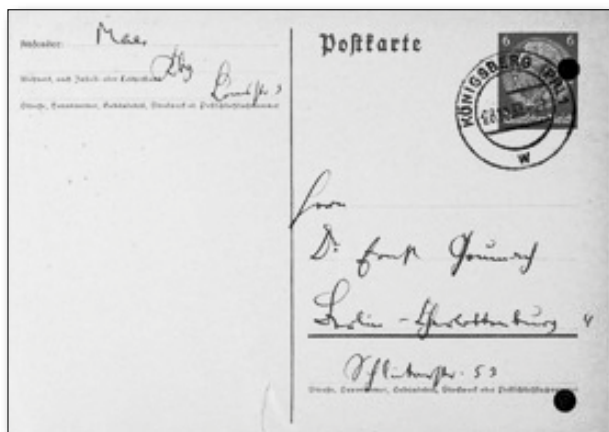 Absender: Maas
Kbg
Wohnort, auch Zustell- oder Leitpostamt
Straße, Hausnummer, Gebäudeteil, Stockwerk oder Postschließfachnummer
Postkarte
6 6
KÖNIGSBERG (PR) 1
W
Herrn
Dr. Ernst Grumach
Berlin - Charlottenburg 4
Schlüterstr. 53
Straße, Hausnummer, Gebäudeteil, Stockwerk oder Postschließfachnummer